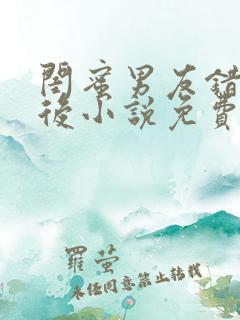 閨蜜男友錯
後小說免費
羅螢
未經同意禁止轉載